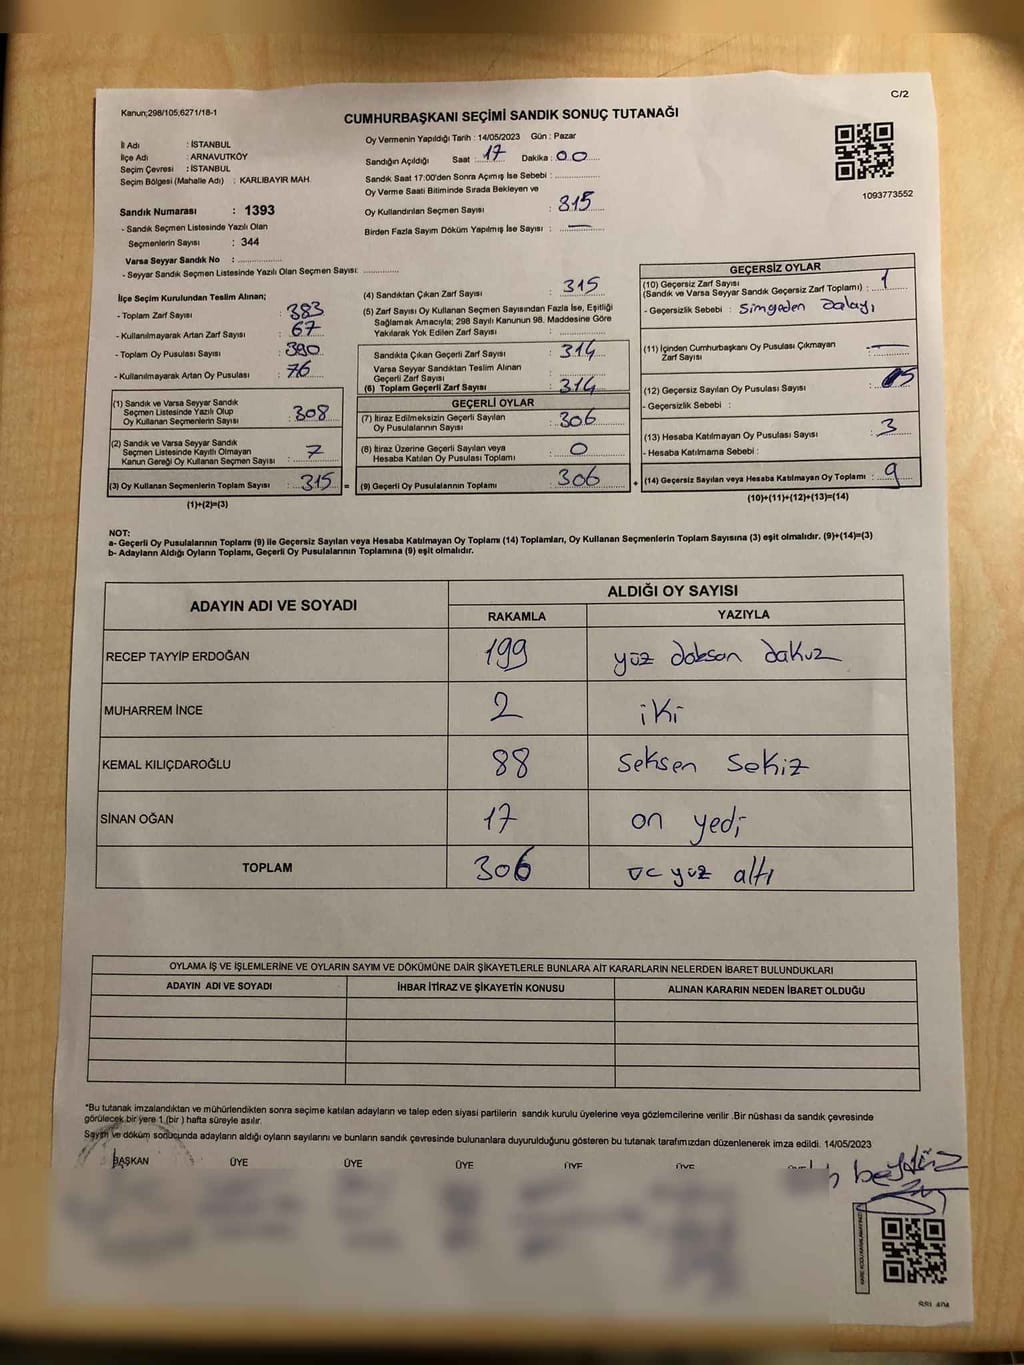 C/2
Kanun;298/105;6271/18-1
CUMHURBAŞKANI SEÇİMİ SANDIK SONUÇ TUTANAĞI
İl Adı : İSTANBUL
İlçe Adı : ARNAVUTKÖY
Seçim Çevresi : İSTANBUL
Seçim Bölgesi (Mahalle Adı) : KARLIBAYIR MAH.
Sandık Numarası : 1393
- Sandık Seçmen Listesinde Yazılı Olan
Seçmenlerin Sayısı : 344
Varsa Seyyar Sandık No :
- Seyyar Sandık Seçmen Listesinde Yazılı Olan Seçmen Sayısı:
Oy Vermenin Yapıldığı Tarih : 14/05/2023 Gün : Pazar
Sandığın Açıldığı Saat : 17 Dakika : 00
Sandık Saat 17:00'den Sonra Açımış İse Sebebi :
Oy Verme Saati Bitiminde Sırada Bekleyen ve
Oy Kullandırılan Seçmen Sayısı : 315
Birden Fazla Sayım Döküm Yapılmış İse Sayısı : —
1093773552
İlçe Seçim Kurulundan Teslim Alınan;
- Toplam Zarf Sayısı : 383
- Kullanılmayarak Artan Zarf Sayısı : 67
- Toplam Oy Pusulası Sayısı : 390
- Kullanılmayarak Artan Oy Pusulası : 76
(1) Sandık ve Varsa Seyyar Sandık
Seçmen Listesinde Yazılı Olup
Oy Kullanan Seçmenlerin Sayısı : 308
(2) Sandık ve Varsa Seyyar Sandık
Seçmen Listesinde Kayıtlı Olmayan
Kanun Gereği Oy Kullanan Seçmen Sayısı : 7
(3) Oy Kullanan Seçmenlerin Toplam Sayısı : 315 =
(1)+(2)=(3)
(4) Sandıktan Çıkan Zarf Sayısı : 315
(5) Zarf Sayısı Oy Kullanan Seçmen Sayısından Fazla İse, Eşitliği
Sağlamak Amacıyla; 298 Sayılı Kanunun 98. Maddesine Göre
Yakılarak Yok Edilen Zarf Sayısı :
Sandıkta Çıkan Geçerli Zarf Sayısı : 314
Varsa Seyyar Sandıktan Teslim Alınan
Geçerli Zarf Sayısı :
(6) Toplam Geçerli Zarf Sayısı : 314
GEÇERLİ OYLAR
(7) İtiraz Edilmeksizin Geçerli Sayılan
Oy Pusulalarının Sayısı : 306
(8) İtiraz Üzerine Geçerli Sayılan veya
Hesaba Katılan Oy Pusulası Toplamı : 0
(9) Geçerli Oy Pusulalarının Toplamı : 306 +
GEÇERSİZ OYLAR
(10) Geçersiz Zarf Sayısı
(Sandık ve Varsa Seyyar Sandık Geçersiz Zarf Toplamı) : 1
- Geçersizlik Sebebi : Simgeden dolayı
(11) İçinden Cumhurbaşkanı Oy Pusulası Çıkmayan
Zarf Sayısı : —
(12) Geçersiz Sayılan Oy Pusulası Sayısı : 5
- Geçersizlik Sebebi :
(13) Hesaba Katılmayan Oy Pusulası Sayısı : 3
- Hesaba Katılmama Sebebi :
(14) Geçersiz Sayılan veya Hesaba Katılmayan Oy Toplamı : 9
(10)+(11)+(12)+(13)=(14)
NOT:
a- Geçerli Oy Pusulalarının Toplamı (9) ile Geçersiz Sayılan veya Hesaba Katılmayan Oy Toplamı (14) Toplamları, Oy Kullanan Seçmenlerin Toplam Sayısına (3) eşit olmalıdır. (9)+(14)=(3)
b- Adayların Aldığı Oyların Toplamı, Geçerli Oy Pusulalarının Toplamına (9) eşit olmalıdır.
ADAYIN ADI VE SOYADI ALDIĞI OY SAYISI
RAKAMLA YAZIYLA
RECEP TAYYİP ERDOĞAN 199 yüz doksan dakuz
MUHARREM İNCE 2 iki
KEMAL KILIÇDAROĞLU 88 Seksen Sekiz
SİNAN OĞAN 17 on yedi
TOPLAM 306 üc yüz altı
OYLAMA İŞ VE İŞLEMLERİNE VE OYLARIN SAYIM VE DÖKÜMÜNE DAİR ŞİKAYETLERLE BUNLARA AİT KARARLARIN NELERDEN İBARET BULUNDUKLARI
ADAYIN ADI VE SOYADI İHBAR İTİRAZ VE ŞİKAYETİN KONUSU ALINAN KARARIN NEDEN İBARET OLDUĞU
*Bu tutanak imzalandıktan ve mühürlendikten sonra seçime katılan adayların ve talep eden siyasi partilerin sandık kurulu üyelerine veya gözlemcilerine verilir .Bir nüshası da sandık çevresinde
görülecek bir yere 1 (bir) hafta süreyle asılır.
Sayım ve döküm sonucunda adayların aldığı oyların sayılarını ve bunların sandık çevresinde bulunanlara duyurulduğunu gösteren bu tutanak tarafımızdan düzenlenerek imza edildi. 14/05/2023
BAŞKAN ÜYE ÜYE ÜYE ÜYE ÜYE